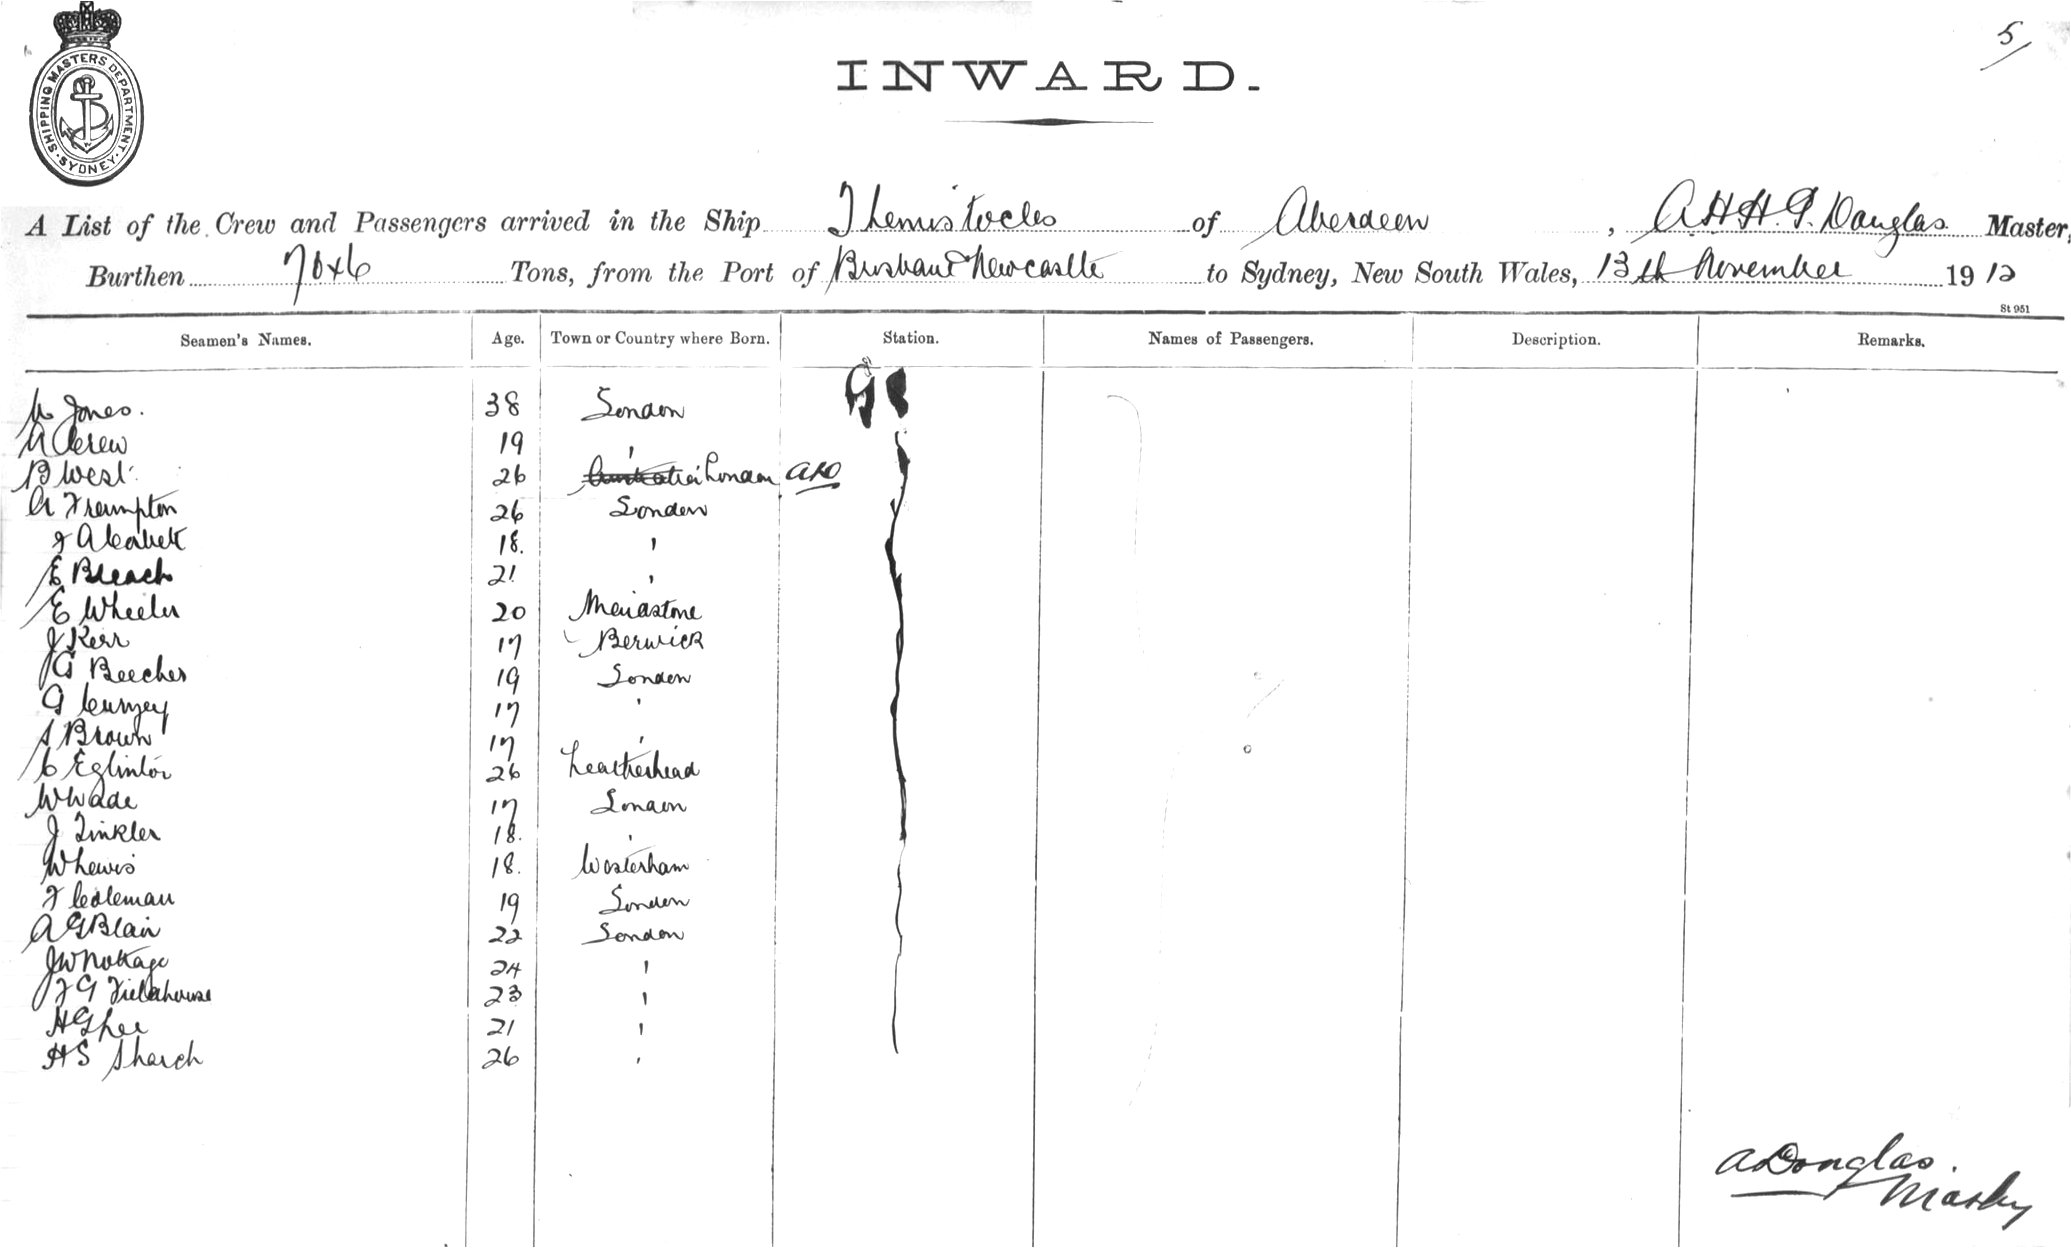 5/
SHIPPING MASTERS DEPARTMENT
SYDNEY
INWARD.
A List of the Crew and Passengers arrived in the Ship Themistocles of Aberdeen, A.H.H.G. Douglas Master,
Burthen 7046 Tons, from the Port of Brisbane & Newcastle to Sydney, New South Wales, 13th November 1912
St 951
Seamen's Names. Age. Town or Country where Born. Station. Names of Passengers. Description. Remarks.
Jones. 38 London
Crew 19 "
B West 26 London
A Frampton 26 London
18. "
E Bleach 21 "
E Wheeler 20 Maidstone
J Kerr 17 Berwick
G Beecher 19 London
G Curzey 17 "
S Brown 17 "
C Eglinton 26 Leatherhead
W Wade 17 London
J Tinkler 18. "
W Lewis 18. Westerham
F Coleman 19 London
A G Blair 22 London
J W Nottage 24 "
F G Fieldhouse 23 "
H G Lee 21 "
H S Sharch 26 "
A Douglas.
Master